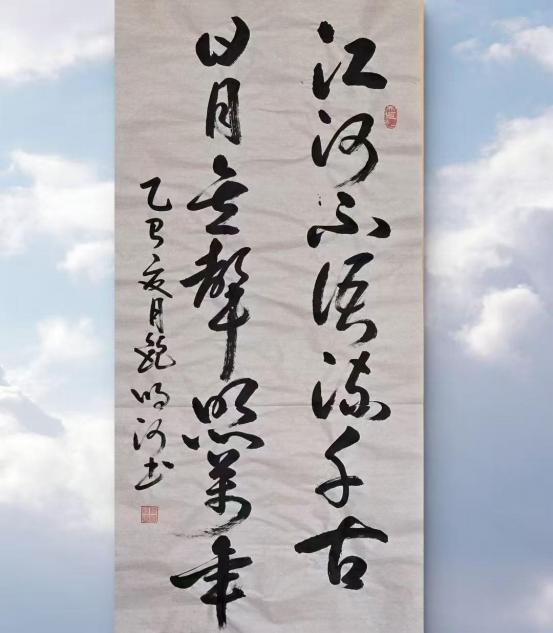 江河不语流千古
日月无聲照万年
乙巳夏月鲍鸣河书